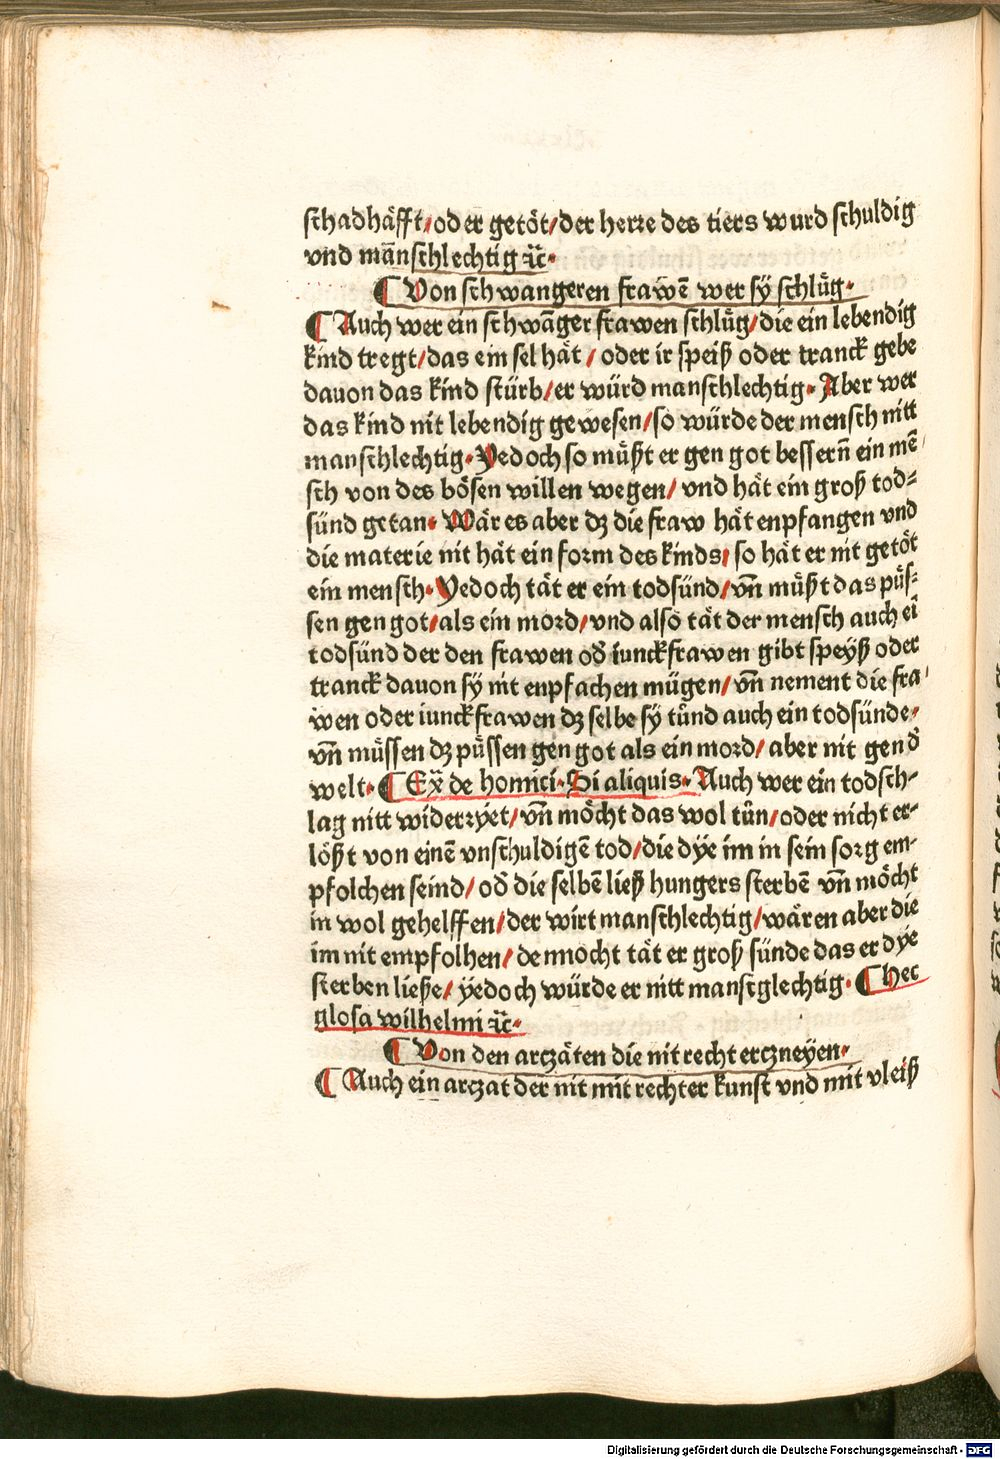 schadhäfft/ od er getöt/ der herre des tiers wurd schuldig
vnd mānschlechtig ⁊c̄.
¶ Von schwangeren frawē wer sÿ schlůg.
¶ Auch wer ein schwāger frawen schlůg/ die ein lebendig
kind tregt/ das ein sel hät/ oder ir speiß oder tranck gebe
dauon das kind stürb/ er würd manschlechtig. Aber wer
das kind nit lebendig gewesen/ so würde der mensch nitt
manschlechtig. Yedoch so můßt er gen got bessern̄ ein mē
sch von des bösen willen wegen/ vnd hät ein groß tod⸗
sünd getan. Wär es aber dz die fraw hät enpfangen vnd
die materie nit hät ein form des kinds/ so hät er nit getöt
ein mensch. Yedoch tät er ein todsünd/ vn̄ můßt das püs⸗
sen gen got/ als ein mord/ vnd also tät der mensch auch ei
todsünd der den frawen od̄ iunckfrawen gibt speyß oder
tranck dauon sÿ nit enpfachen mügen/ vn̄ nement die fra
wen oder iunckfrawen dz selbe sÿ tůnd auch ein todsünde.
vn̄ můssen dz půssen gen got als ein mord/ aber nit gen d̄
welt. ¶ Ex̄ de homici. Si aliquis. Auch wer ein todsch⸗
lag nitt widerzyet/ vn̄ möcht das wol tůn/ oder nicht er⸗
lößt von einē vnschuldigē tod/ die dÿe im in sein sorg em⸗
pfolchen seind/ od̄ die selbē ließ hungers sterbē vn̄ möcht
in wol gehelffen/ der wirt manschlechtig/ wären aber die
im nit empfolhen/ dennocht tät er groß sünde das er dÿe
sterben ließe/ ÿedoch würde er nitt manscglechtig. ¶ hec
glosa wilhelmi ⁊c̄.
¶ Von den arczäten die nit recht erczneÿen.
¶ Auch ein arczat der nit mit rechter kunst vnd mit vleiß
Digitalisierung gefördert durch die Deutsche Forschungsgemeinschaft - DFG